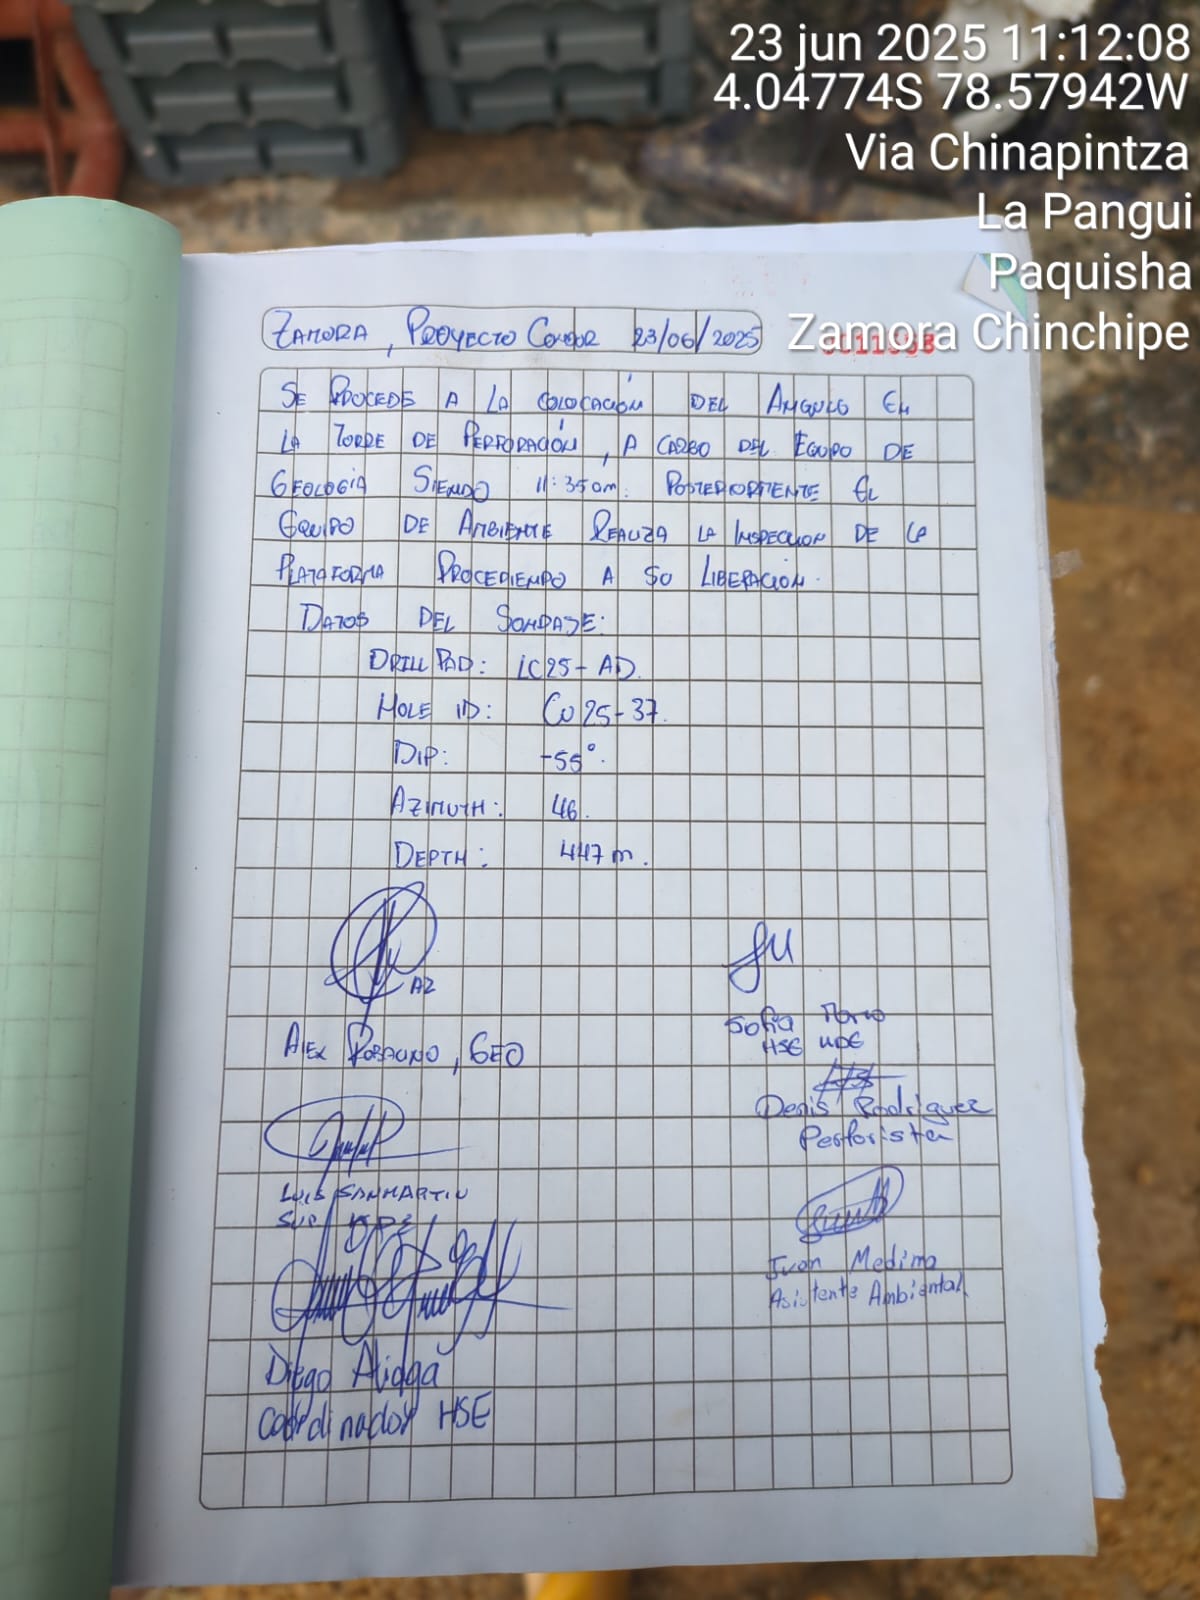 23 jun 2025 11:12:08
4.04774S 78.57942W
Via Chinapintza
La Pangui
Paquisha
Zamora Chinchipe
ZAMORA, PROYECTO CONDOR 23/06/2025
SE PROCEDE A LA COLOCACIÓN DEL ANGULO EN
LA TORRE DE PERFORACIÓN, A CARGO DEL EQUIPO DE
GEOLOGÍA SIENDO 11:35am. POSTERIORMENTE EL
EQUIPO DE AMBIENTE REALIZA LA INSPECCION DE LA
PLATAFORMA PROCEDIENDO A SU LIBERACIÓN.
DATOS DEL SONDAJE:
DRILL PAD: LC25-AD.
HOLE ID: CU25-37.
DIP: -55°.
AZIMUTH: 46.
DEPTH: 447 m.
AZ
ALEX, GEO
Sofia
HSE
Denis Rodriguez
Perforista
LUIS SANMARTIN
SUP
Ivan Medina
Asistente Ambiental
Diego Aliaga
Coordinador HSE